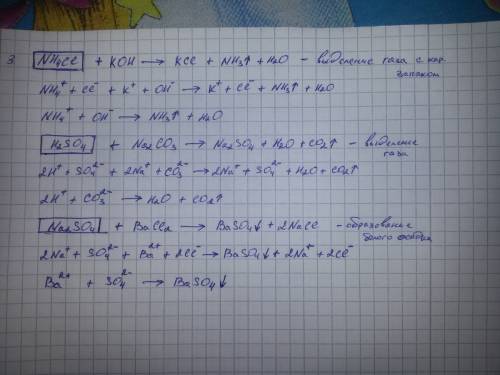 3. NH4Cl + KOH → KCl + NH3↑ + H2O – выделение газа с хар. запахом
NH4⁺ + Cl⁻ + K⁺ + OH⁻ → K⁺ + Cl⁻ + NH3↑ + H2O
NH4⁺ + OH⁻ → NH3↑ + H2O
H2SO4 + Na2CO3 → Na2SO4 + H2O + CO2↑ – выделение газа
2H⁺ + SO4²⁻ + 2Na⁺ + CO3²⁻ → 2Na⁺ + SO4²⁻ + H2O + CO2↑
2H⁺ + CO3²⁻ → H2O + CO2↑
Na2SO4 + BaCl2 → BaSO4↓ + 2NaCl – образование белого осадка
2Na⁺ + SO4²⁻ + Ba²⁺ + 2Cl⁻ → BaSO4↓ + 2Na⁺ + 2Cl⁻
Ba²⁺ + SO4²⁻ → BaSO4↓